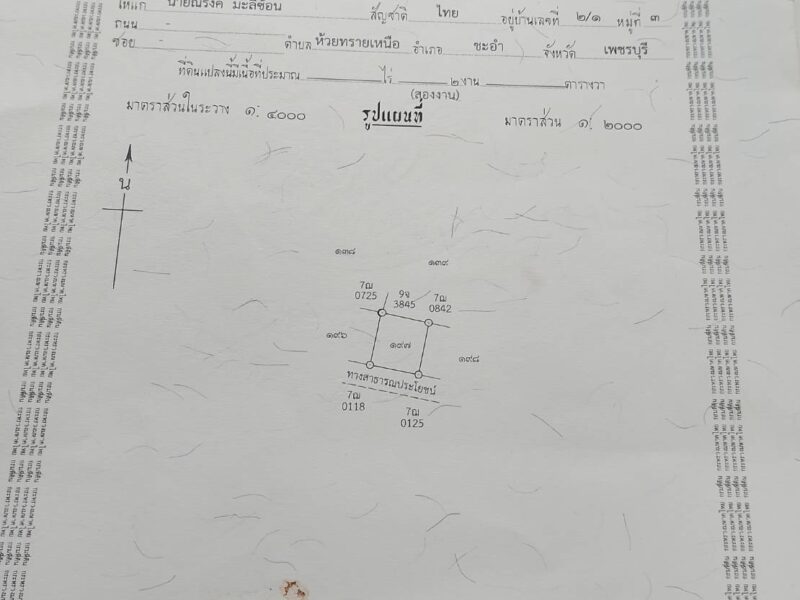 ให้แก่ นายณรงค์ มะลิซ้อน สัญชาติ ไทย อยู่บ้านเลขที่ ๒/๑ หมู่ที่ ๓
ถนน -
ซอย - ตำบล ห้วยทรายเหนือ อำเภอ ชะอำ จังหวัด เพชรบุรี
ที่ดินแปลงนี้มีเนื้อที่ประมาณ ไร่ ๒ งาน ตารางวา
(สองงาน)
มาตราส่วนในระวาง ๑: ๔๐๐๐ รูปแผนที่ มาตราส่วน ๑: ๒๐๐๐
น
๑๓๘ ๑๓๙
7ฌ 0725
9จ 3845
7ฌ 0842
๑๙๖ ๑๙๗ ๑๙๘
ทางสาธารณประโยชน์
7ฌ 0118
7ฌ 0125